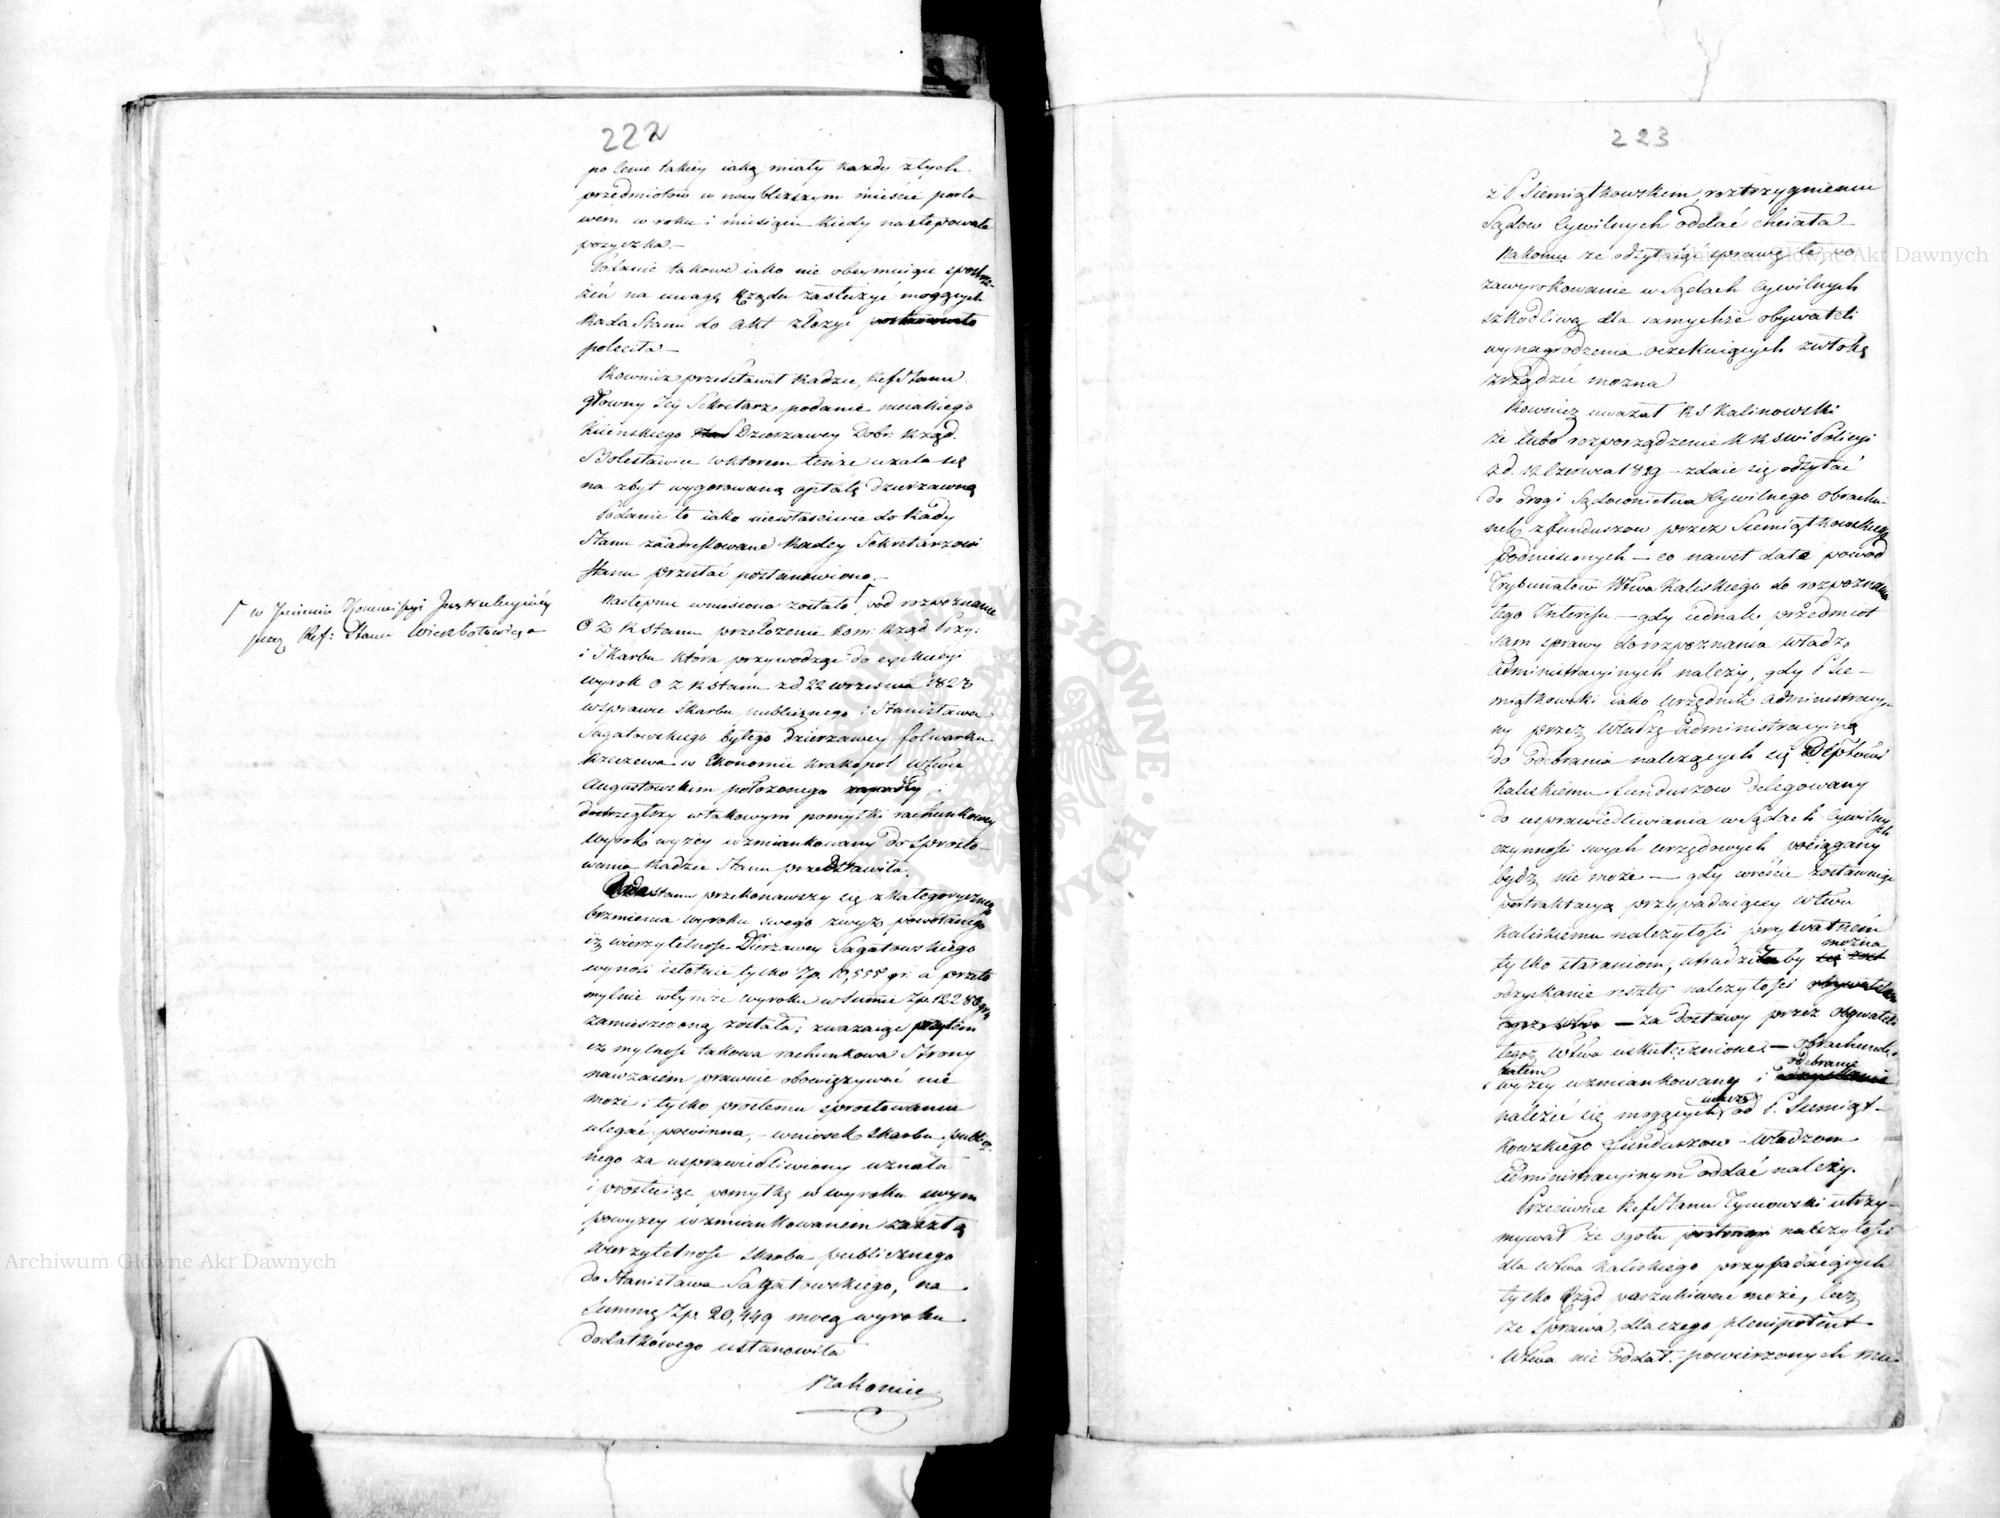 222
po cenie takiey iaką miały każdy z tych
przedmiotów w naybliższym mieście porto
wém w roku i miesiącu kiedy następowała
pożyczka. —
Podanie takowe iako nie obeymuiące spostrze-
żeń na uwagę Rządu zasłużyć mogących
Rada Stanu do akt złożyć
poleciła —
Rownież przedstawił Radzie, Ref Stanu
głowny Jéy Sekretarz podanie nieiakiego
Kiienskiego Dzierzawcy Dobr Rząd.
Bolesławia w ktorem tenże użala się
na zbyt wygorowaną opłatę dzierzawną
Podanie to iako niewłaściwie do Rady
Stanu zaadressowane Radcy Sekretarzowi
Stanu przesłać postanowiono. —
Następnie wniesione zostało Γ pod rozpoznanie
O Z R Stanu przełożenie Kom: Rząd Przy:
i Skarbu która przywodząc do exekucyi
wyrok O Z R Stanu z d. 22 września 1823
w sprawie Skarbu publicznego i Stanisława
Sagatowskiego byłego dzierzawcy folwarku
w Ekonomii Wtwie
Augustowskiem położonego zapadły i
dostrzegłszy w takowym pomyłki rachunkowey
wyrok wyzey wzmiankowany do sprosto-
wania Radzie Stanu przedstawiła.
Rada Stanu przekonawszy się z kategorycznego
brzmienia wyroku swego zwyż powołanego
iż wierzytelność Dzierzawcy Sagatowskiego
wynosi istotnie tylko Zp. 10,555 gr. a przeto
mylnie w tymże wyroku w summie Zp. 12286
zamieszczoną została; zważaiąc przytém
iż mylność takowa rachunkowa Strony
nawzaiem prawnie obowięzywać nie
może i tylko prostemu sprostowaniu
ulegać powinna, — wniosek Skarbu public-
nego za usprawiedliwiony uznała
i prostuiąc pomyłkę w wyroku swym
powyzey wzmiankowaném zaszłą
wierzytelność Skarbu publicznego
do Stanisława Sagatowskiego, na
Summę Zp. 20,449 mocą wyroku
dodatkowego ustanowiła
Nakoniec
Γ w Imieniu Kommissyi Instrukcyinéy
przez Ref: Stanu Wierzbołowicza
223
z P Siemiątkowskem, roztrzygnieniu
Sądow Cywilnych oddać chciała —
Nakoniec że odsyłaiąc sprawę tę po
zawyrokowanie w Sądach Cywilnych
szkodliwą dla samychże obywateli
wynagrodzenia oczekuiących zwłokę
zrządzić można
Rownież uważał RS Kalinowski
że lubo rozporządzenie KRSWi Policyi
z d. 12 Czerwca 1819 — zdaie się odsyłać
do drogi Sądownictwa Cywilnego obrachu-
nek z funduszow przez Siemiątkowskiego
podniesionych — co nawet dało powód
Trybunałowi Wtwa Kaliskiego do rozpoznania
tego Interessu — gdy iednak przedmiot
sam sprawy do rozpoznania władz
administracyinych należy, gdy P Sie-
miątkowski iako urzędnik administracyi-
ny przez Władzę administracyiną
do odebrania należących się Wtwu
Kaliskiemu funduszow delegowany
do usprawiedliwiania w Sądach Cywilnych
czynności swych urzędowych pociągany
bydź nie może — gdy wreście zostawuiąc
pertraktacyą przypadaiącey Wtwu
Kaliskiemu należytości prywatném
tylko staraniom, utrudziłaby się można
odzyskanie reszty należytości
— za dostawy przez obywateli
tegoż Wtwa uskutecznione. — obrachunek
zatem odebranie
wyzey wzmiankowany i
należeć się mogących od P. Siemiąt-
kowskiego funduszow władzom
Administracyinym oddać należy.
Przeciwnie Ref Stanu Tymowski utrzy-
mywał że ogołu należytości
dla Wtwa Kaliskiego przypadaiących
tylko Rząd poszukiwać może, lecz
że sprawa, dlaczego plenipotent
Wtwa nie oddał powierzonych mu
Archiwum Główne Akt Dawnych
Archiwum Główne Akt Dawnych